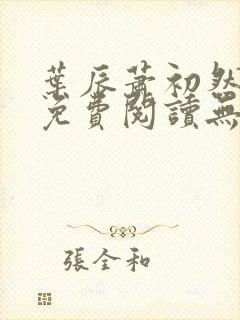 葉辰蕭初然
免費閱讀無
張全和